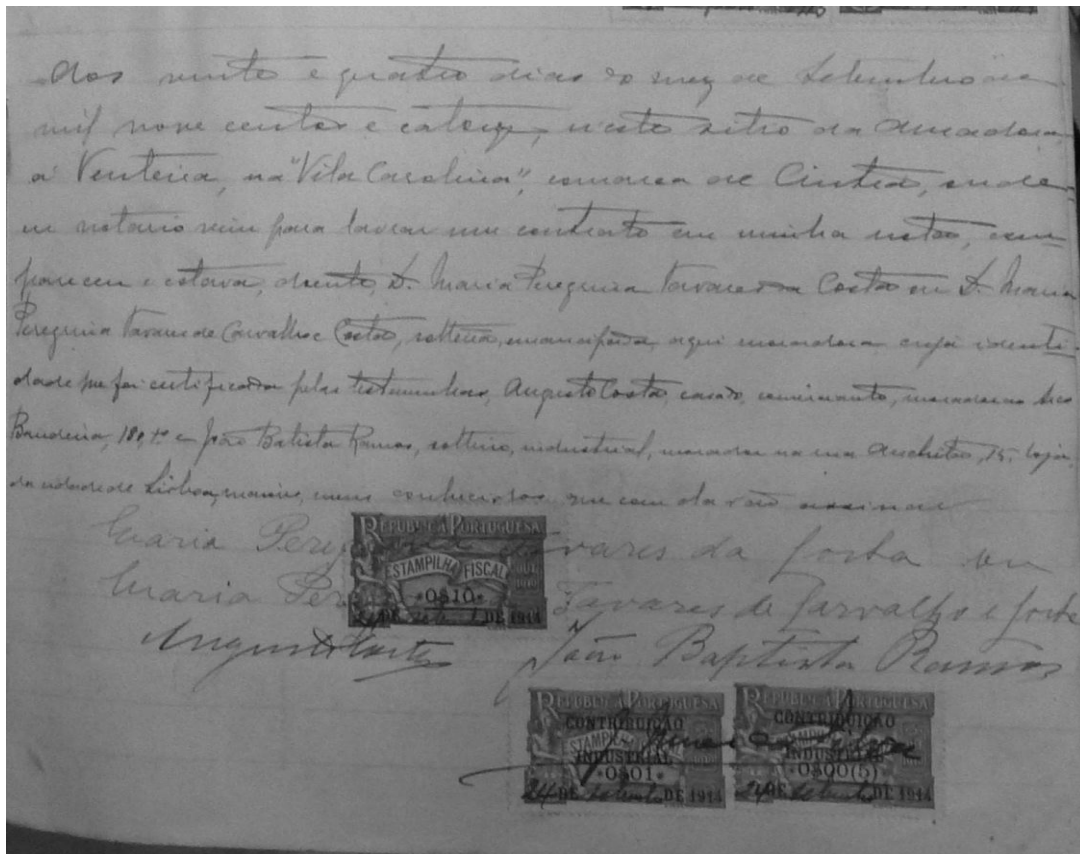 Aos vinte e quatro dias do mez de Setembro de
mil nove centos e catorze, neste sitio da Amadora
á Venteira, na "Vila Carolina", comarca de Cintra, onde
eu notario vim para lavrar um contrato em minha nota, com-
pareceu e estava, doente, D. Maria Peregrina Tavares da Costa ou D. Maria
Peregrina Tavares de Carvalho e Costa, solteira, emancipada, aqui moradora cuja identi-
dade me foi certificada pelas testemunhas, Augusto Costa, casado, comerciante, morador no Arco
Bandeira, 180, 1º e João Batista Ramos, solteiro, industrial, morador na rua Anchieta, 15, loja,
da cidade de Lisboa, maiores, meus conhecidos que com ela vão assinar
Maria Tavares da Costa ou
Maria Tavares de Carvalho e Costa
REPUBLICA PORTUGUESA
ESTAMPILHA FISCAL
0$10
DE 1914
Augusto Costa João Baptista Ramos
REPUBLICA PORTUGUESA REPUBLICA PORTUGUESA
CONTRIBUIÇÃO CONTRIBUIÇÃO
INDUSTRIAL INDUSTRIAL
0$01 0$00(5)
24 DE Setembro DE 1914 24 DE Setembro DE 1914